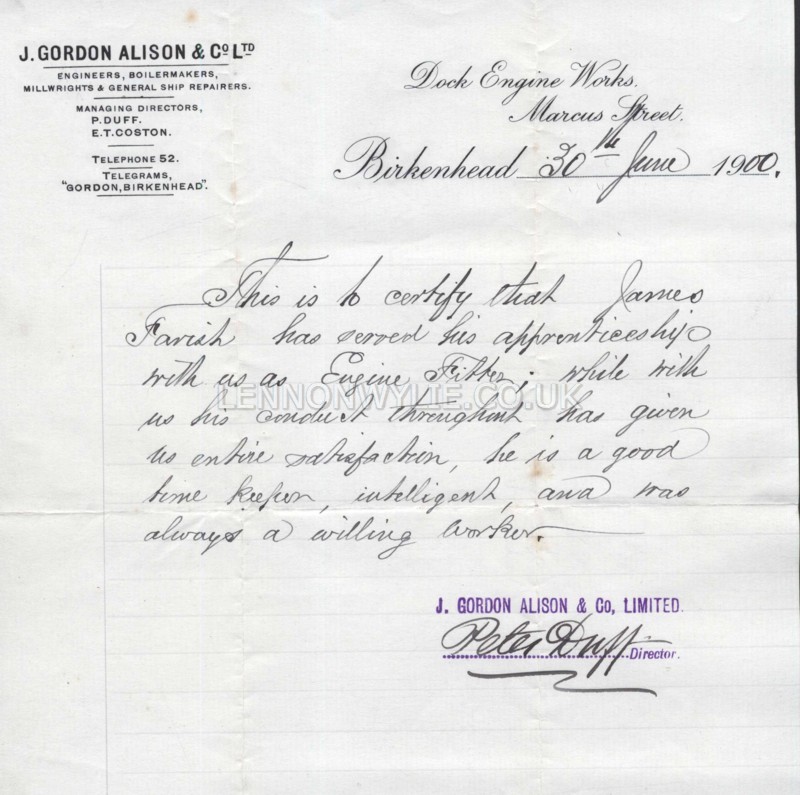 J. GORDON ALISON & Co LTD
ENGINEERS, BOILERMAKERS,
MILLWRIGHTS & GENERAL SHIP REPAIRERS.
MANAGING DIRECTORS,
P. DUFF.
E.T. COSTON.
TELEPHONE 52.
TELEGRAMS,
"GORDON, BIRKENHEAD".
Dock Engine Works.
Marcus Street.
Birkenhead 30th June 1900.
This is to certify that James
Farish has served his apprenticeship
with us as Engine Fitter; while with
us his conduct throughout has given
us entire satisfaction, he is a good
time keeper, intelligent, and was
always a willing worker.
LENNONWYLIE.CO.UK
J. GORDON ALISON & Co, LIMITED.
Peter Duff Director.